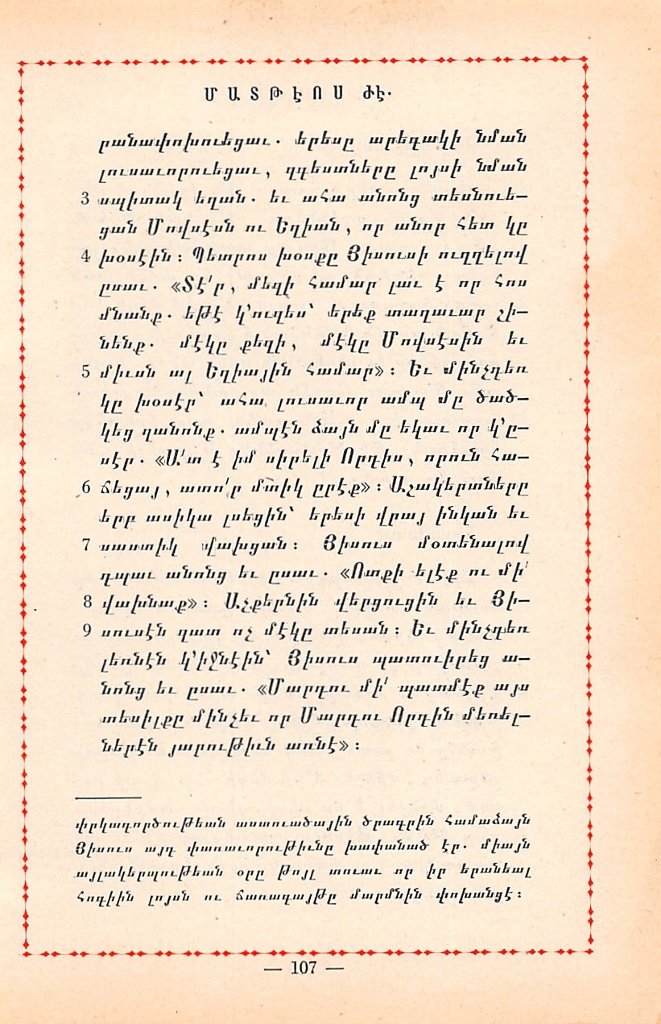 ՄԱՏԹԷՈՍ ԺԷ.
րանափոխուեցաւ. երեսը արեգակի նման
լուսաւորուեցաւ, զգեստները լոյսի նման
3 սպիտակ եղան. եւ ահա անոնց տեսնուե—
ցան Մովսէսն ու Եղիան, որ անոր հետ կը
4 խօսէին։ Պետրոս խօսքը Յիսուսի ուղղելով
ըսաւ. «Տէ՛ր, մեզի համար լաւ է որ հոս
մնանք. եթէ կ՚ուզես՝ երեք տաղաւար շի—
նենք. մէկը քեզի, մէկը Մովսէսին եւ
5 միւսն ալ Եղիային համար»։ Եւ մինչդեռ
կը խօսէր՝ ահա լուսաւոր ամպ մը ծած—
կեց զանոնք. ամպէն ձայն մը եկաւ որ կ՚ը—
սէր. «Ա՛տ է իմ սիրելի Որդիս, որուն հա—
6 ճեցայ, ատո՛ր մտիկ ըրէք»։ Աշակերտները
երբ ասիկա լսեցին՝ երեսի վրայ ինկան եւ
7 սաստիկ վախցան։ Յիսուս մօտենալով
դպաւ անոնց եւ ըսաւ. «Ոտքի ելէք ու մի՛
8 վախնաք»։ Աչքերնին վերցուցին եւ Յի—
9 սուսէն զատ ոչ մէկը տեսան։ Եւ մինչդեռ
լեռնէն կ՚իջնէին՝ Յիսուս պատուիրեց ա—
նոնց եւ ըսաւ. «Մարդու մի՛ պատմէք այս
տեսիլքը մինչեւ որ Մարդու Որդին մեռել—
ներէն յարութիւն առնէ»։
փրկագործութեան աստուածային ծրագրին համաձայն
Յիսուս այդ փառաւորութիւնը խափանած էր. միայն
այլակերպութեան օրը թոյլ տուաւ որ իր երանեալ
հոգիին լոյսն ու ճառագայթը մարմնին փոխանցէ։
— 107 —